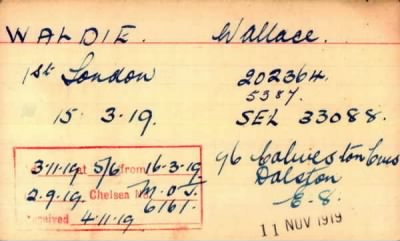 WALDIE. Wallace.
1st London 202364.
5387.
15. 3. 19. SEL 33088.
3-11-19 at 5/6 from 16-3-19
2.9.19. Chelsea No. M.O.J. 6161.
Received 4-11-19
96
Dalston
E-8.
11 NOV 1919